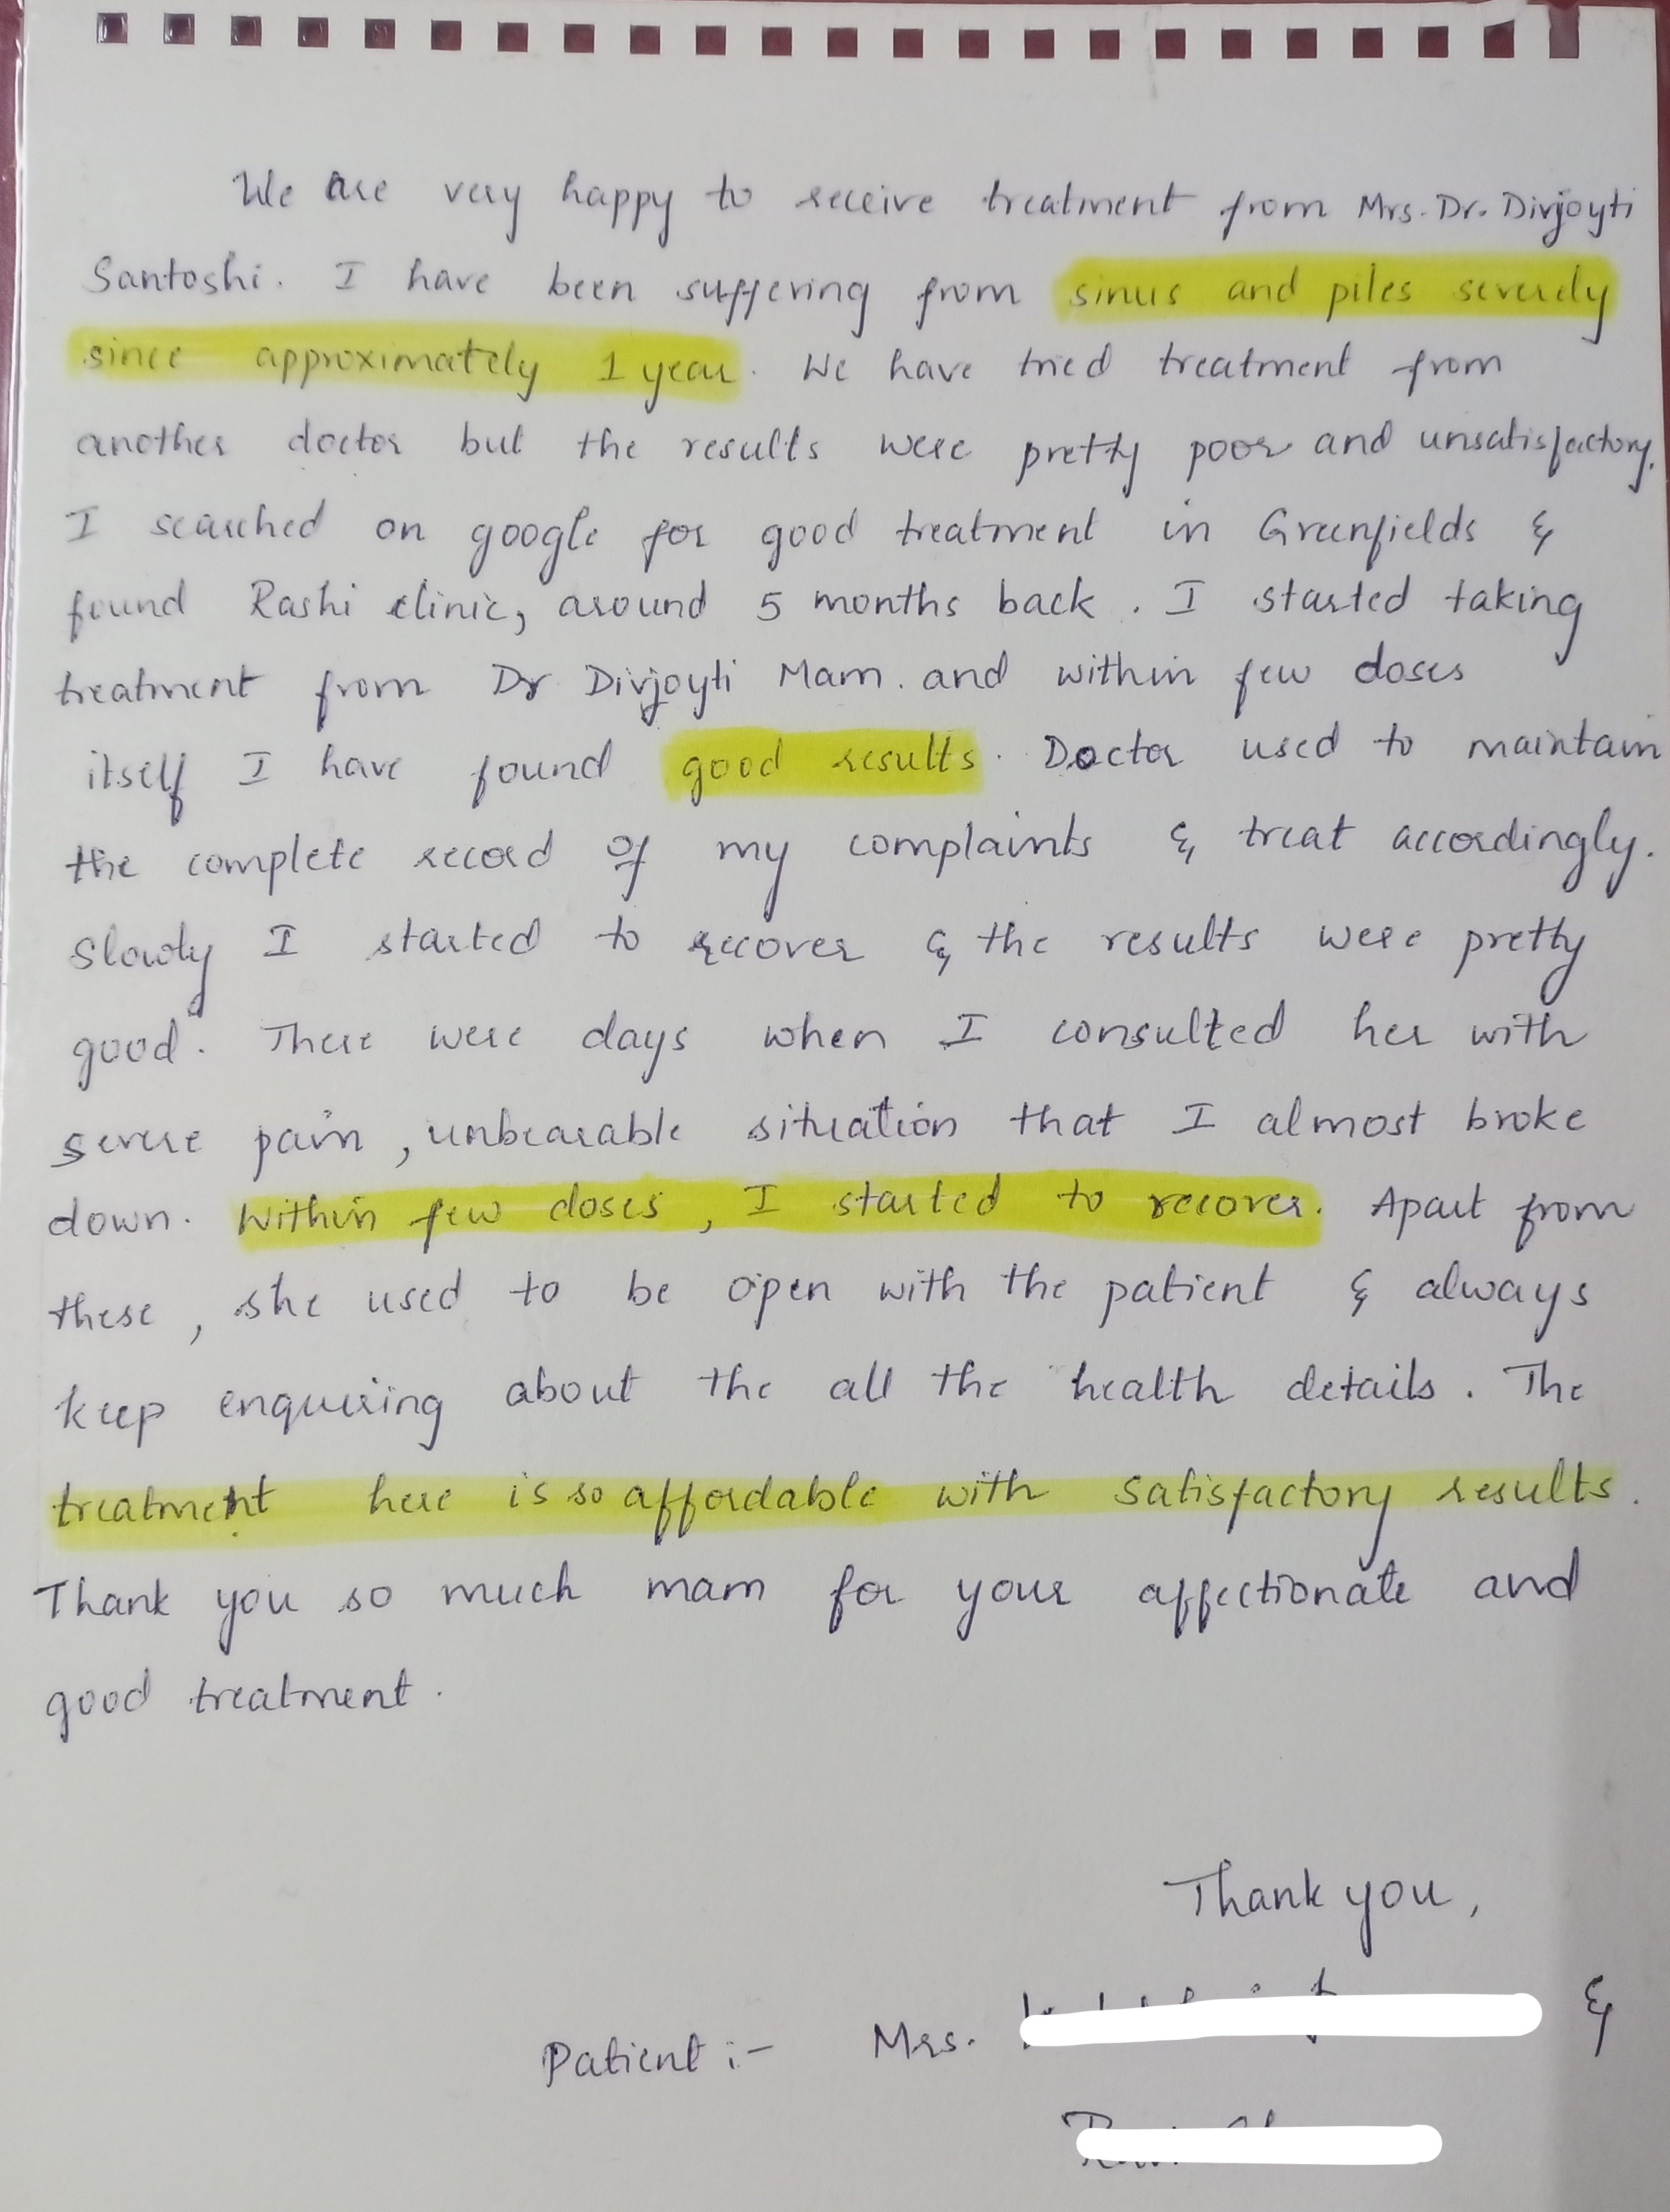 We are very happy to receive treatment from Mrs. Dr. Divjoyti
Santoshi. I have been suffering from sinus and piles severely
since approximately 1 year. We have tried treatment from
another doctor but the results were pretty poor and unsatisfactory.
I searched on google for good treatment in Greenfields &
found Rashi clinic, around 5 months back. I started taking
treatment from Dr Divjoyti Mam. and within few doses
itself I have found good results. Doctor used to maintain
the complete record of my complaints & treat accordingly.
Slowly I started to recover & the results were pretty
good. There were days when I consulted her with
severe pain, unbearable situation that I almost broke
down. Within few doses, I started to recover. Apart from
these, she used to be open with the patient & always
keep enquiring about the all the health details. The
treatment here is so affordable with satisfactory results.
Thank you so much mam for your affectionate and
good treatment.
Thank you,
Patient :- Mrs. &